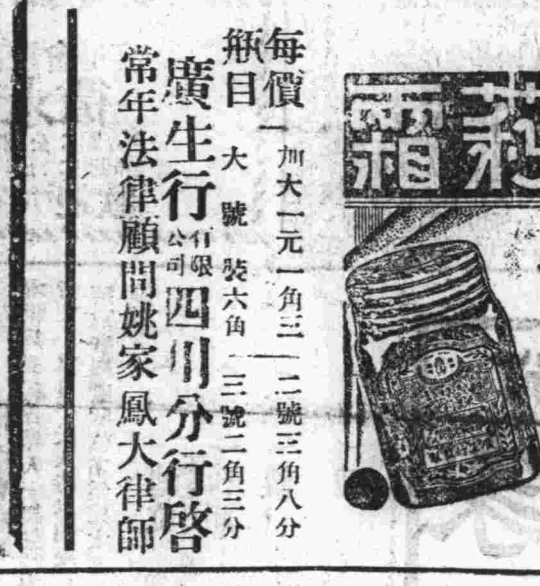 莉霜
每瓶價目
加大一元一角三
二號三角八分
大號裝六角
三號二角三分
廣生行有限公司四川分行啓
常年法律顧問姚家鳳大律師